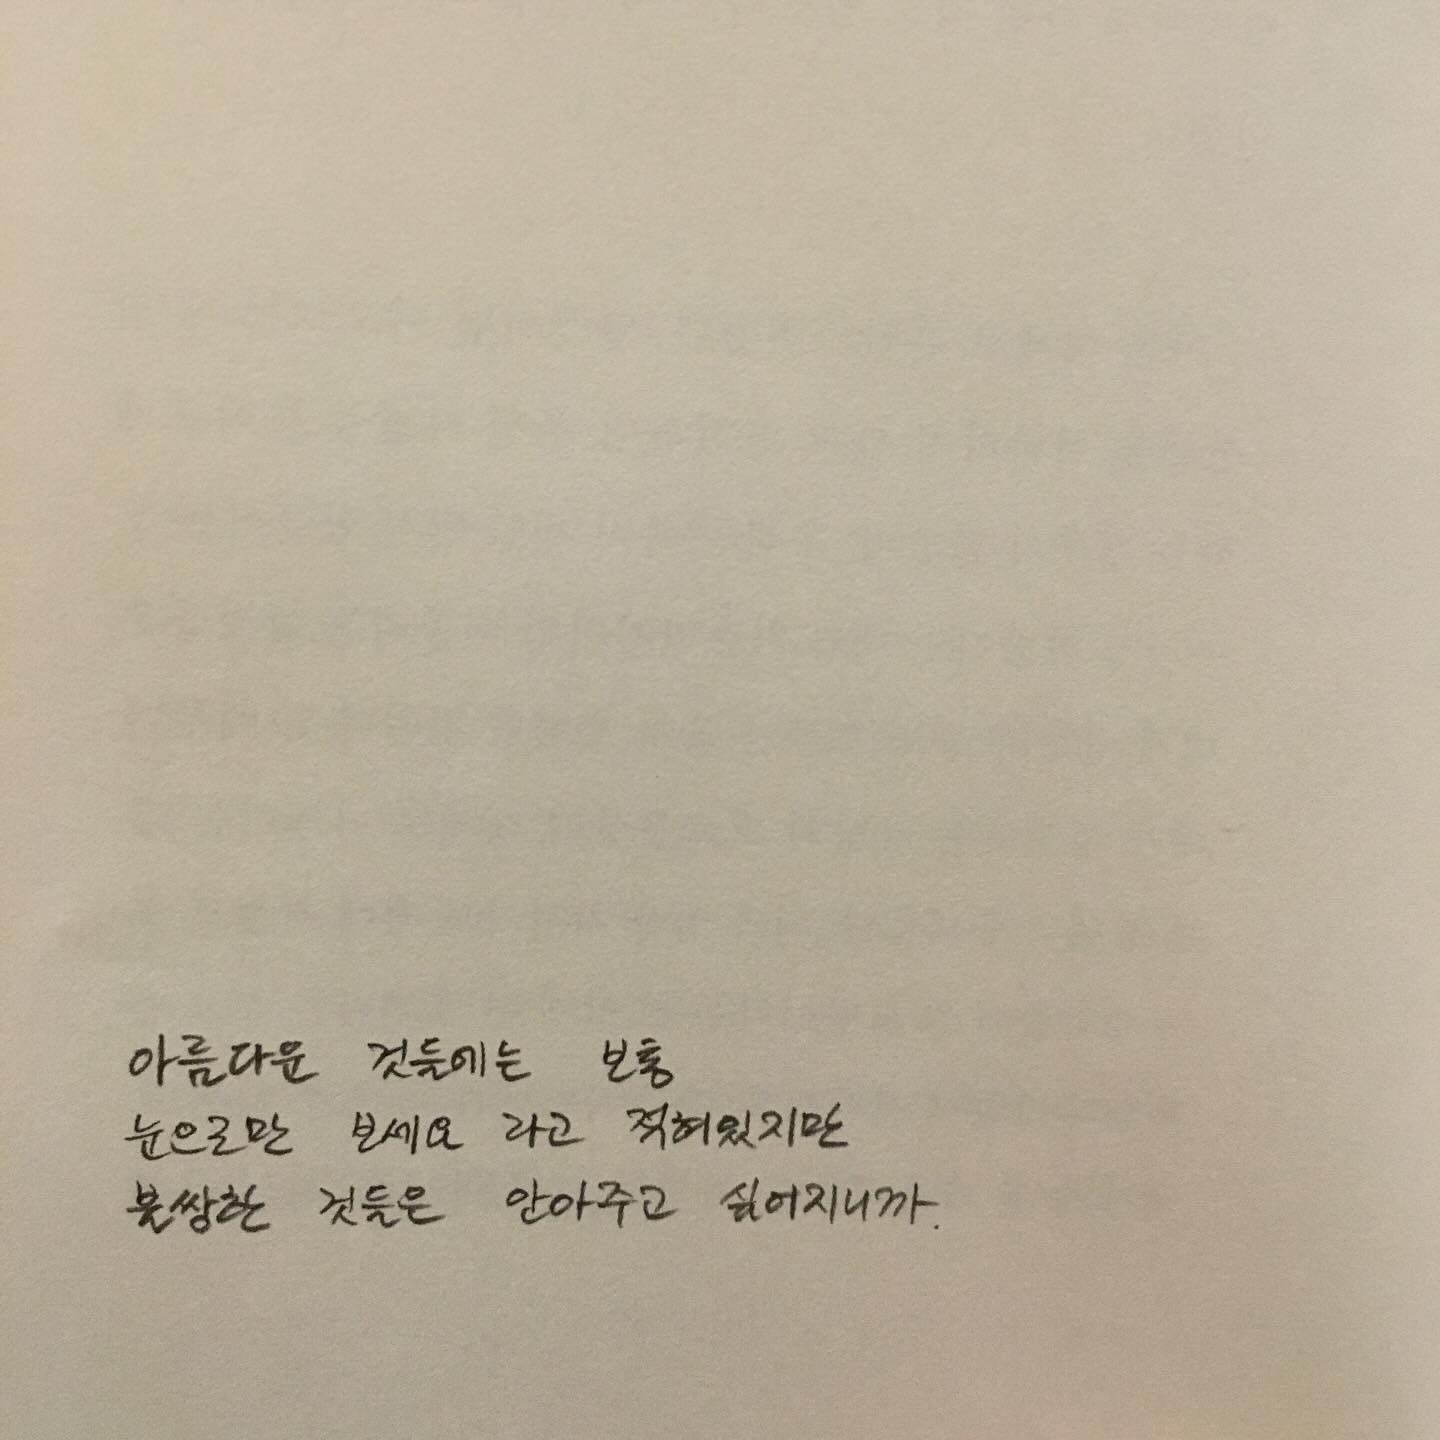 아름다운 것들에는 보통
눈으로만 보세요 라고 적혀있지만
불쌍한 것들은 안아주고 싶어지니까.